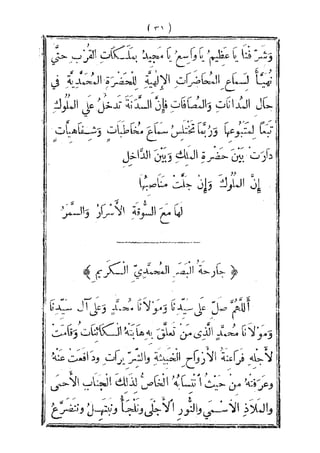 (٣١)
وَشَرِّفْنَا يَا عَظِيمُ يَا وَاسِعُ يَا مَجِيدُ بِمَلَكَاتِ القُرْبِ حَتَّى
نُهَيَّأَ لِسَمَاعِ المُحَاضَرَاتِ الإِلٰهِيَّةِ لِلْحَضْرَةِ المُحَمَّدِيَّةِ فِي
حَالِ المُدَانَاتِ وَالمُصَافَاتِ فَإِنَّ السَّدَنَةَ تَدْخُلُ عَلَى المُلُوكِ
تَبَعًا لِمَتْبُوعِهَا وَرُبَّمَا تَخْتَلِسُ سَمَاعَ مُخَاطَبَاتٍ وَشِفَاهِيَّاتٍ
دَارَتْ بَيْنَ حَضْرَةِ المَلِكِ وَبَيْنَ الدَّاخِلِ
إِنَّ المُلُوكَ وَإِنْ جَلَّتْ مَنَاصِبُهَا
لَهَا مَعَ السُّوقَةِ الأَسْرَارُ وَالسَّمَرُ
﴿ جَارِحَةُ البَصَرِ المُحَمَّدِيِّ الكَرِيمِ ﴾
اَللّٰهُمَّ صَلِّ عَلَى سَيِّدِنَا وَمَوْلَانَا مُحَمَّدٍ وَعَلَى آلِ سَيِّدِنَا
وَمَوْلَانَا مُحَمَّدٍ الَّذِي مَنْ تَعَلَّقَ بِهِ هَابَتْهُ الكَائِنَاتُ وَقَامَتْ
لِأَجْلِهِ فَرَاعِنَةُ الأَرْوَاحِ الخَبِيثَةِ وَالشِّرِّيرَاتِ وَدَافَعَتْ عَنْهُ
وَعَرَفَتْهُ مِنْ حَيْثُ انْتِسَابُهُ الخَاصُّ لِذَلِكَ الجَنَابِ الأَحْمَى
وَالمَلَاذِ الأَسْمَى وَالنُّورِ الأَجْلَى وَنَلْجَأُ وَنَبْتَهِلُ وَنَتَضَرَّعُ